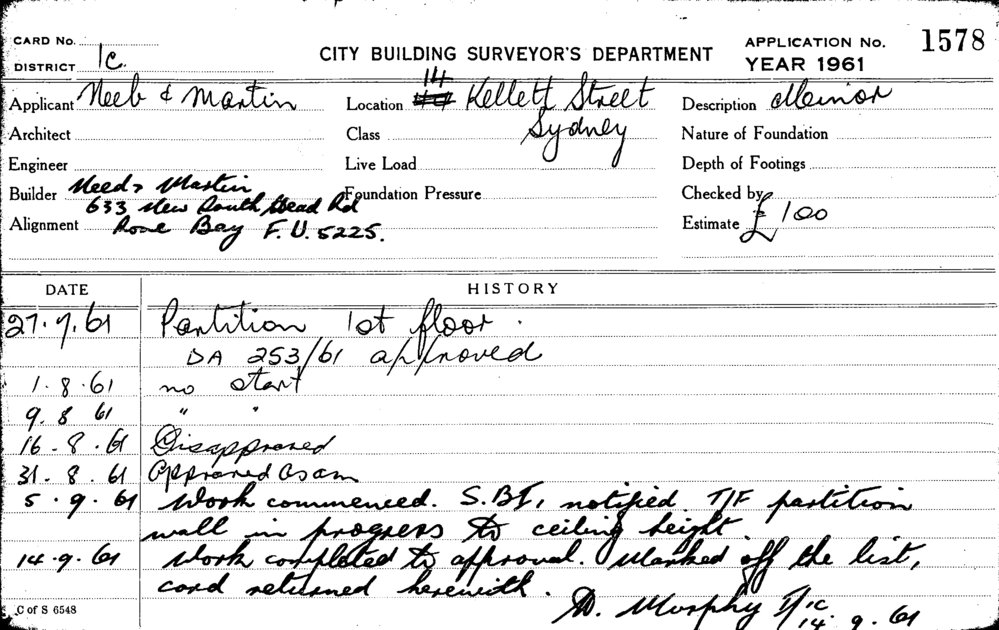 CARD No.
DISTRICT 1c.
CITY BUILDING SURVEYOR'S DEPARTMENT
APPLICATION No. 1578
YEAR 1961
Applicant Neeb & Martin
Location 14 Kellett Street
Sydney
Description Minor
Architect
Class
Nature of Foundation
Engineer
Live Load
Depth of Footings
Builder Need & Martin
Foundation Pressure
Checked by
633 New South Head Rd
Alignment Rose Bay F.U. 5225.
Estimate £100
DATE HISTORY
27.7.61 Partition 1st floor.
DA 253/61 approved
1.8.61 no start
9.8 61 " "
16-8.61 Disapproved
31.8.61 Approved as am
5.9.61 Work commenced. S.B.I. notified. T/F partition
wall in progress to ceiling height
14.9.61 Work completed to approval. Marked off the list,
card returned herewith.
C of S 6548
Murphy
14.9.61